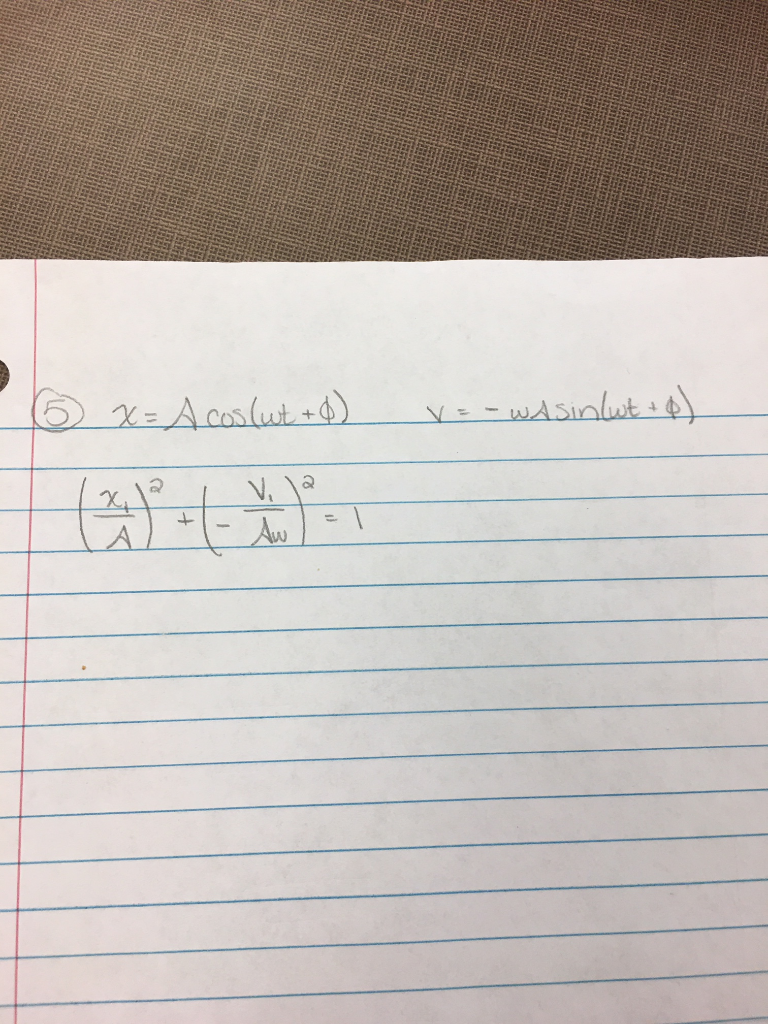 ⑤ x = A cos(ωt + ϕ) v = - ωA sin(ωt + ϕ)
(x₁/A)² + (- v₁/Aω)² = 1